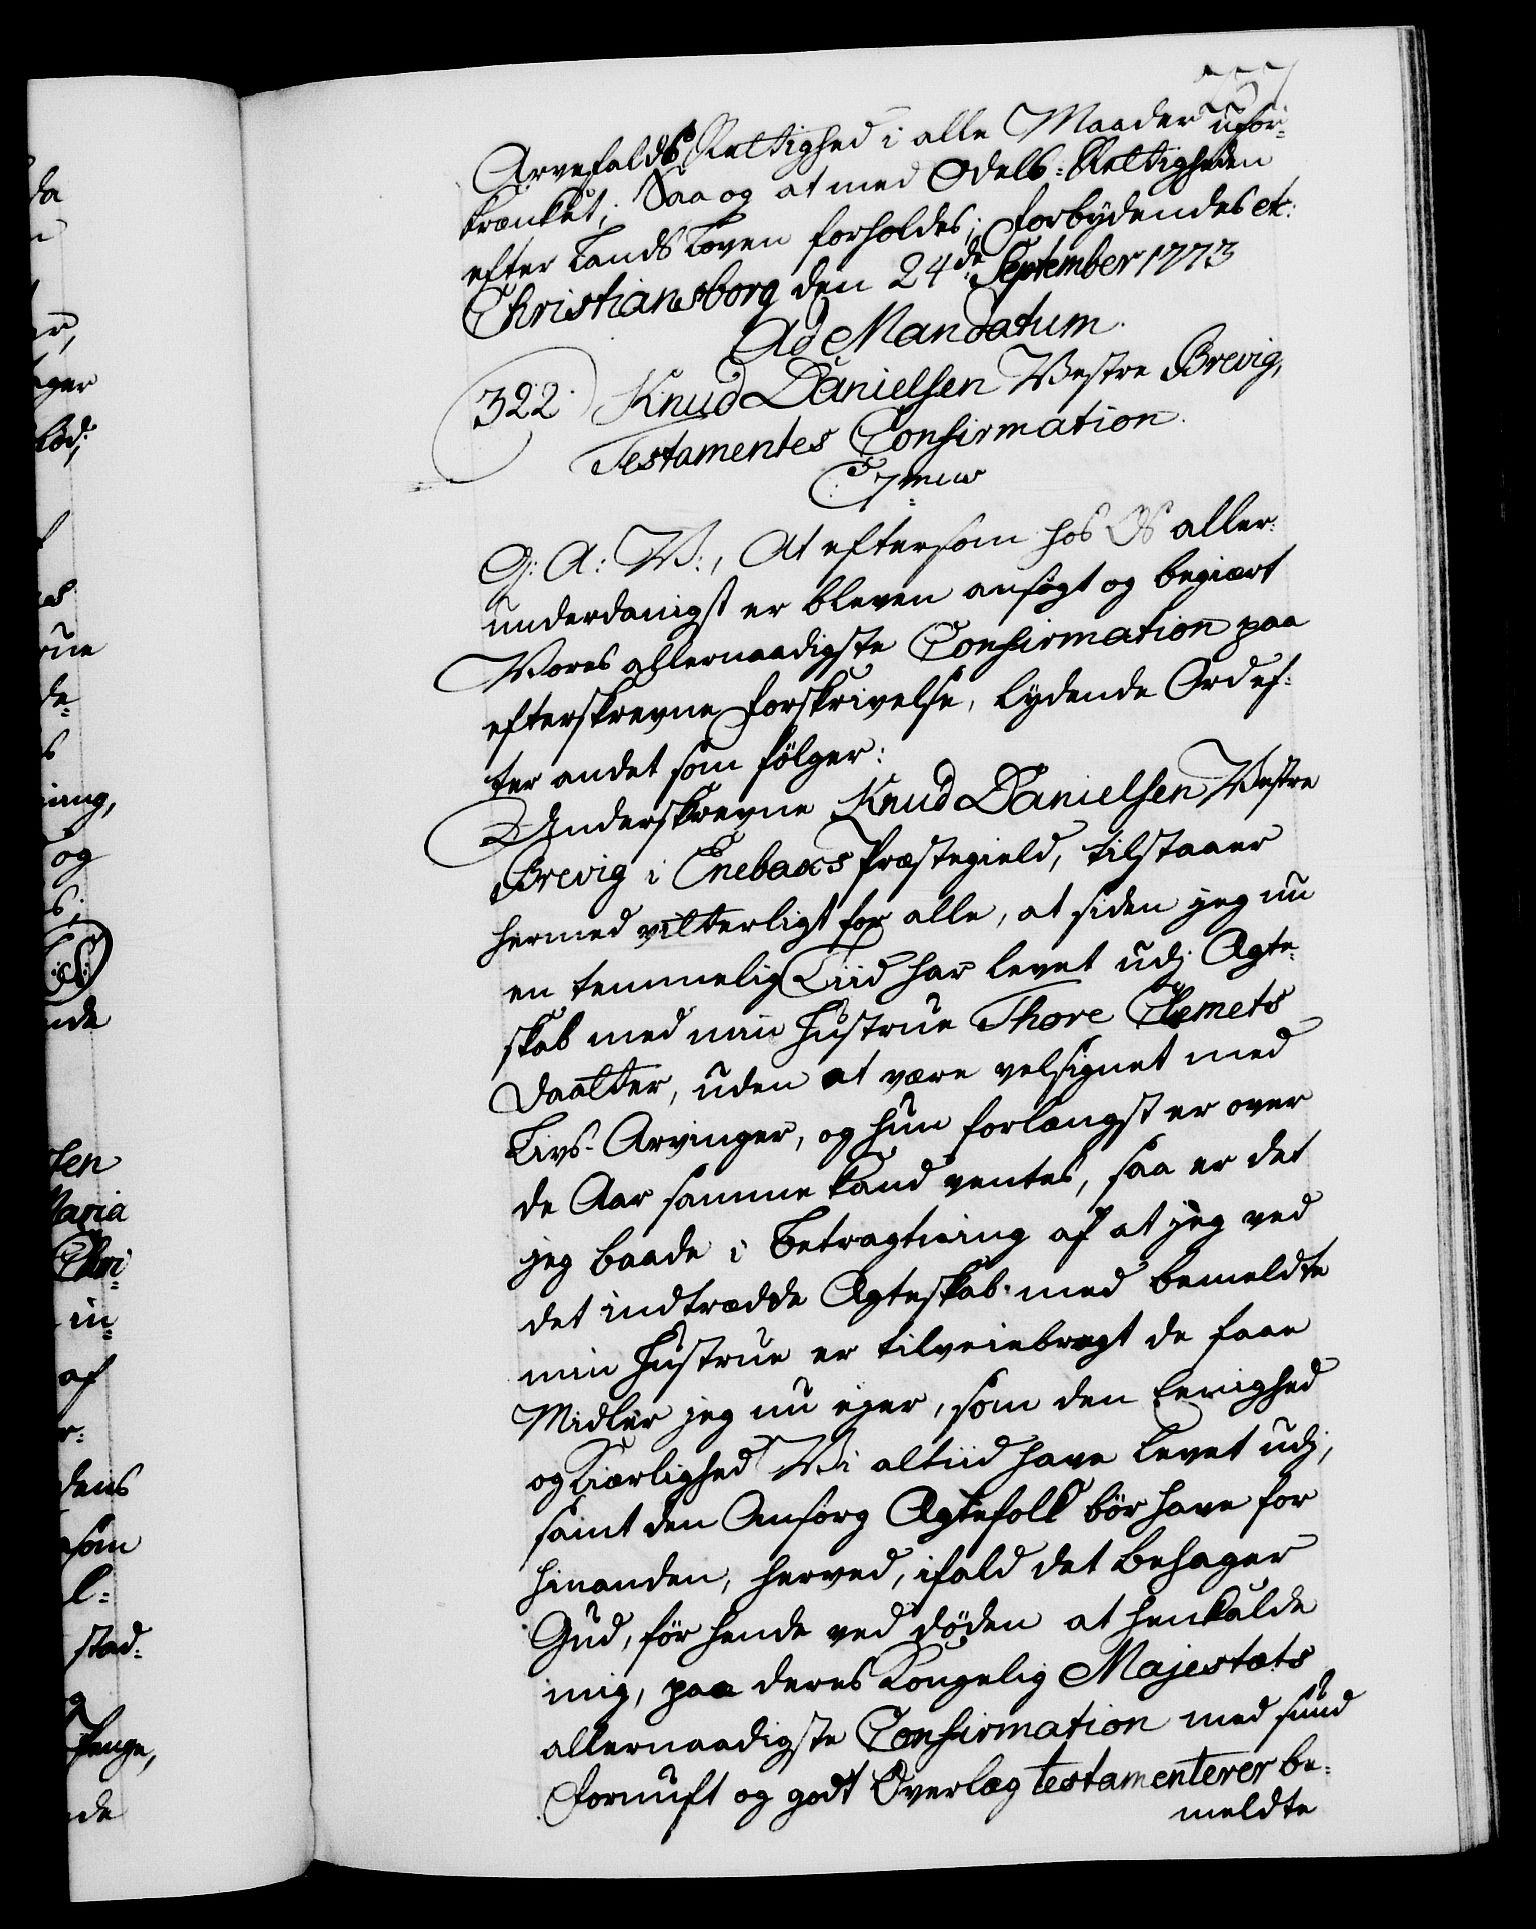 Arvefalds Rettighed i alle Maader ufor-
krænket; Saa og at med Odels-Rettigheden
efter Lands Loven forholdes; Forbydendes etc:
Christiansborg den 24de September 1773
Ad Mandatum.
322. Knud Danielsen Vestre Brevig,
Testamentes Confirmation.
G: A: V:, At eftersom hos Os aller-
underdanigst er bleven ansøgt og begiært
Vores allernaadigste Confirmation paa
efterskrevne Forskrivelse, lydende Ord ef-
ter andet som følger:
Underskrevne Knud Danielsen Vestre
Brevig i Enebaks Præstegield, tilstaaer
hermed vitterligt for alle, at siden jeg nu
en temmelig Tiid har levet udj Ægte-
skab med min Hustrue Thore Clemets
Daatter, uden at være velsignet med
Livs-Arvinger, og hun forlængst er over
de Aar samme kand ventes, saa er det
jeg baade i Betragtning af at jeg ved
det indtrædde Ægteskab med bemeldte
min Hustrue er tilveiebragt de faae
Midler jeg nu ejer, som den Eenighed
og Kiærlighed Vi altiid have levet udj,
samt den Omsorg Ægtefolk bør have for
hinanden, herved, ifald det behager
Gud, før hende ved døden at henkalde
mig, paa deres Kongelig Majestæts
allernaadigste Confirmation med sund
Fornuft og godt Overlæg testamenterer be-
meldte